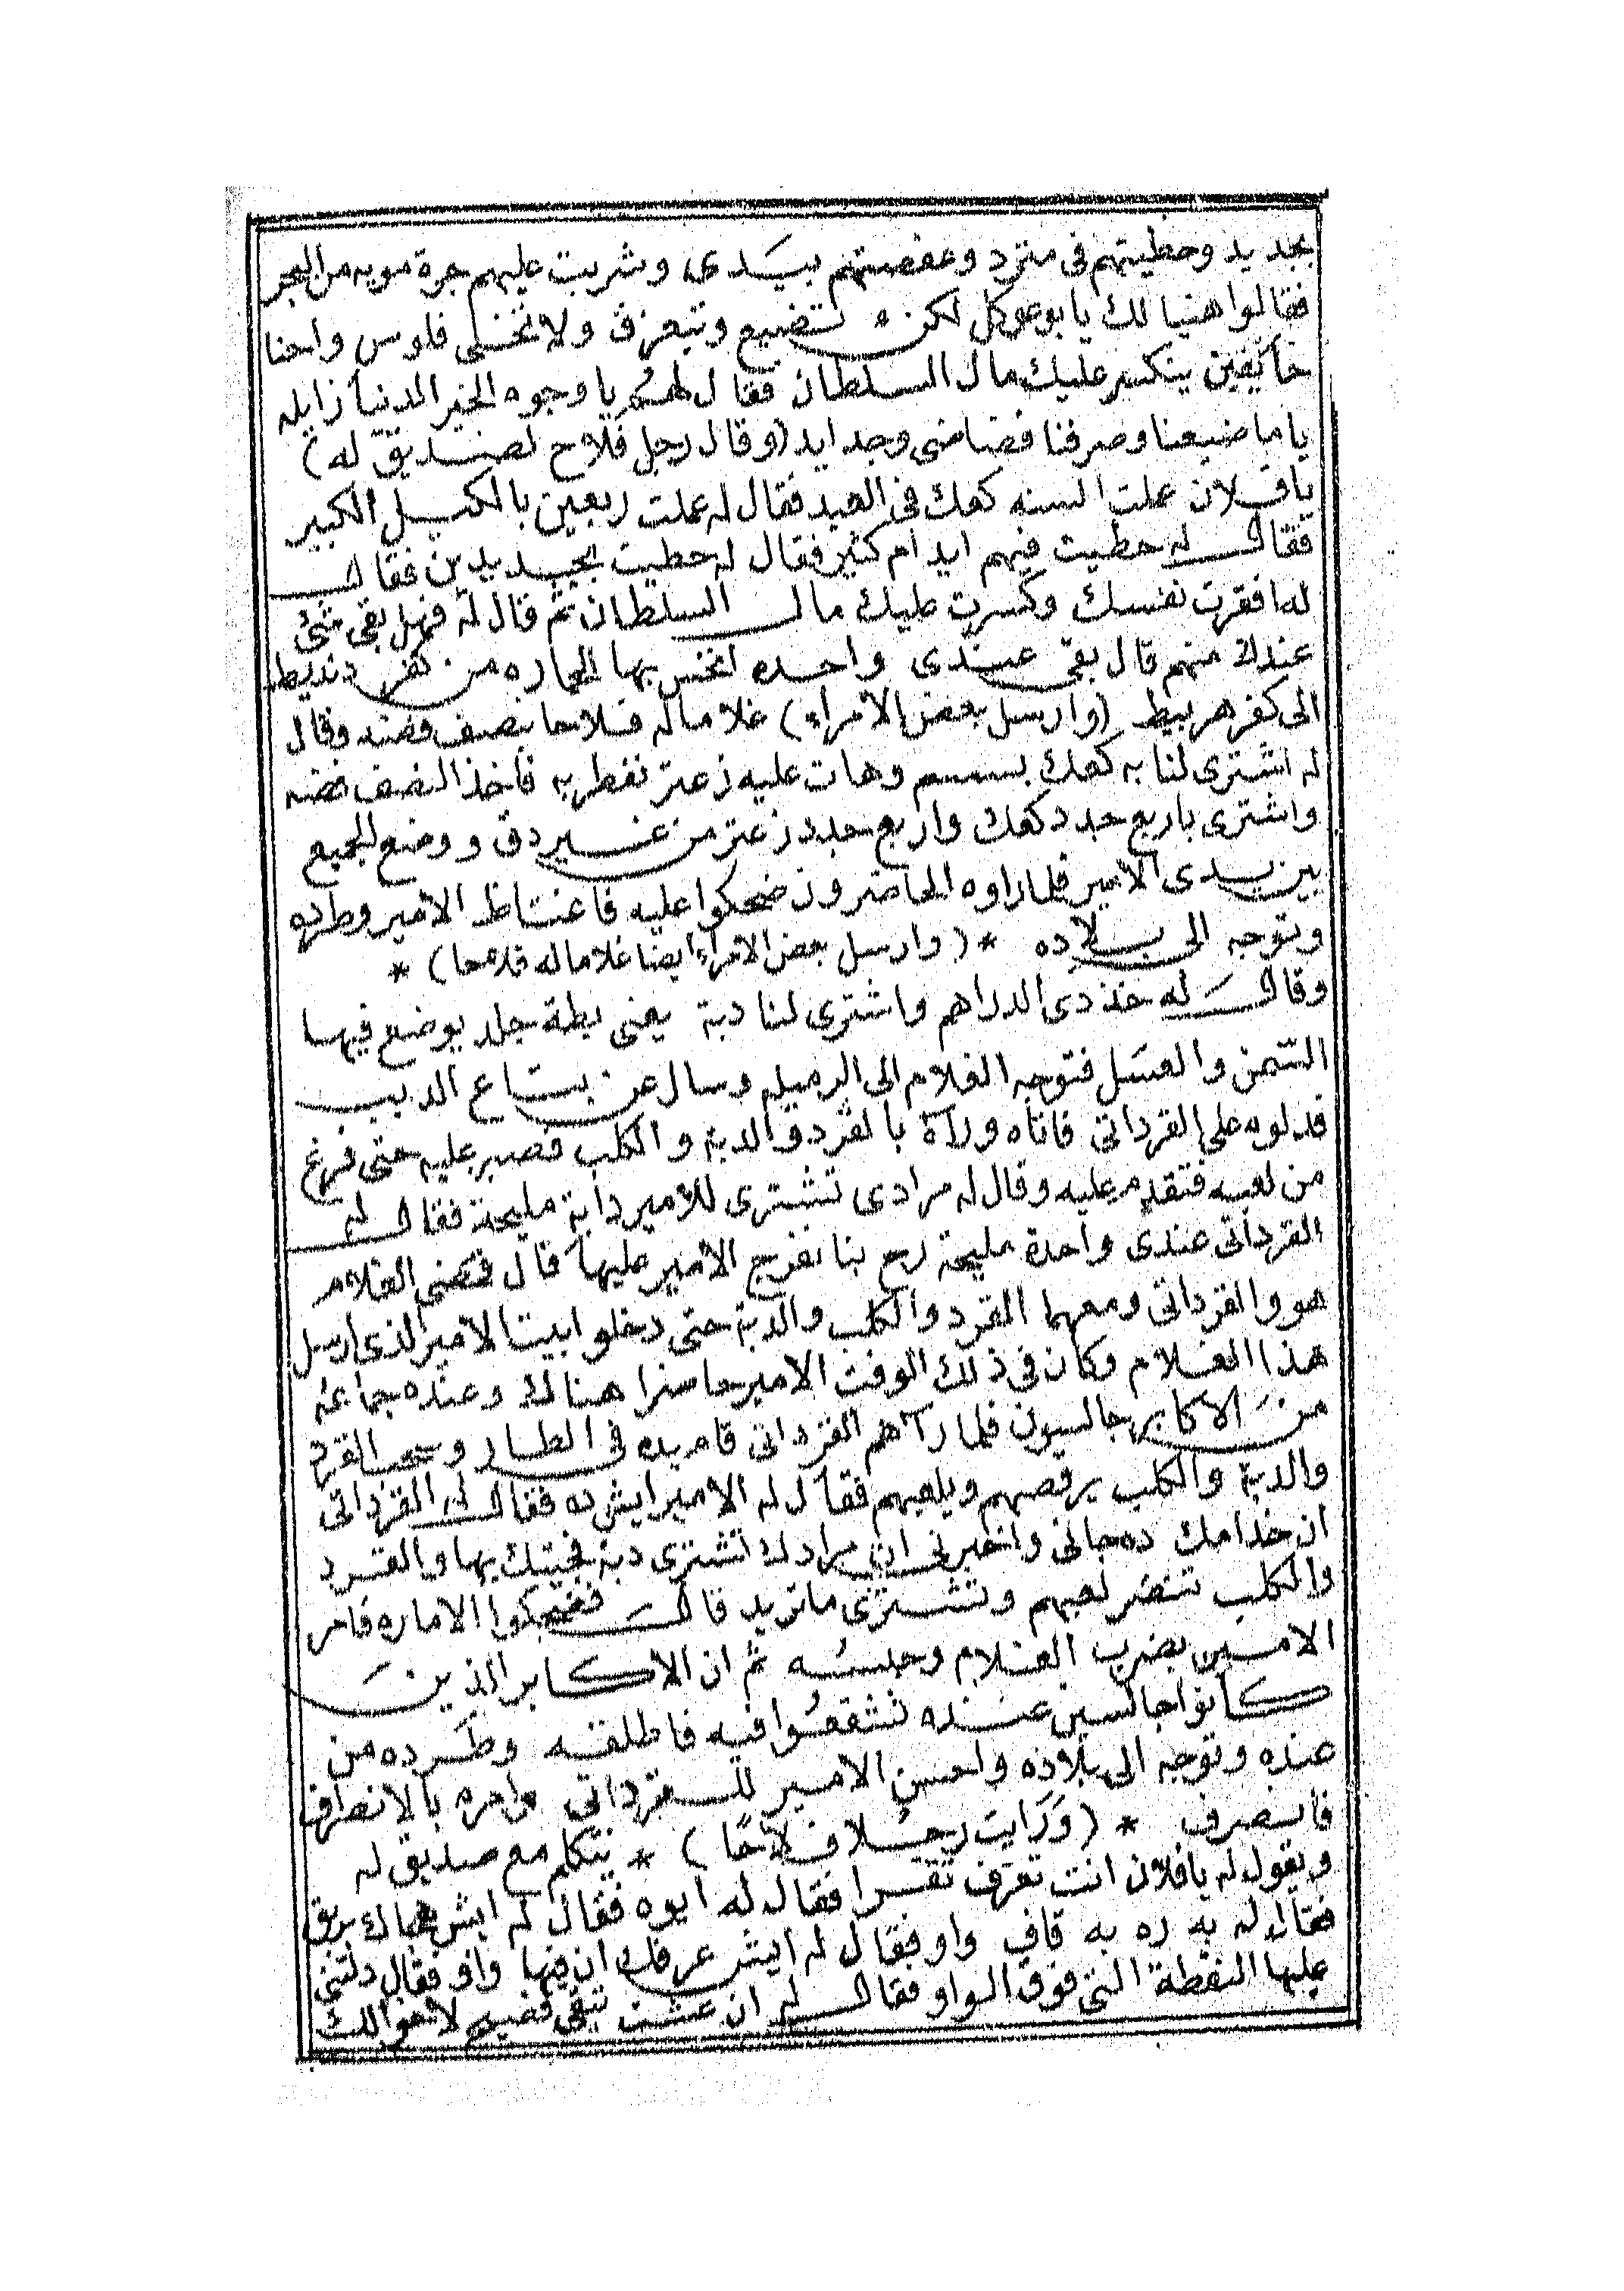 بجديد وحطيتهم فى متزد وعفصتهم بيدى وشربت عليهم جرة مويه من البحر
فقالوا هنيا لك يا بوعوكل لكن تضيع وتبعزق ولا تخلى فلوس واحنا
خايفين ينكسر عليك مال السلطان فقال لهم يا وجوه الخير الدنيا زايله
ياما ضيعنا وصرفنا فضا ضى وجدايد (وقال رجل فلاح لصديق له)
يا فلان عملت السنه كعك فى العيد فقال له عملت ربعين بالكيل الكبير
فقال له حطيت فيهم ايدام كثير فقال له حطيت بجديدين فقال
له افقرت نفسك وكسرت عليك مال السلطان ثم قال له فهل بقى شئ
عندك منهم قال بقى عندى واحده انخس بها الحماره من كفر دنديط
الى كفر هربيط (وارسل بعض الامراء) غلاما له فلاحا بنصف فضه وقال
له اشترى لنا به كعك بسمسم وهات عليه زعتر نفطر به فاخذ النصف فضه
واشترى باربع جدد كعك واربع جدد زعتر من غير دق ووضع الجميع
بين يدى الامير فلما راوه الحاضرون ضحكوا عليه فاغتاظ الامير وطرده
وتوجه الى بلاده * (وارسل بعض الامراء ايضا غلاما له فلاحا) *
وقال له خذ دى الدراهم واشترى لنا دبة يعنى بطة جلد يوضع فيها
السمن والعسل فتوجه الغلام الى الرميله وسال عن بتاع الدبب
فدلوه على القرداتى فاتاه ورآه بالقرد والدبة والكلب فصبر عليه حتى فرغ
من لعبه فتقدم عليه وقال له مرادى تشترى للامير دابة مليحة فقال له
القرداتى عندى واحدة مليحة رح بنا نفرج الامير عليها قال فمضى الغلام
هو والقرداتى ومعهما القرد والكلب والدبة حتى دخلوا بيت الامير الذى ارسل
هذا الغلام وكان فى ذلك الوقت الامير حاضرا هناك وعنده جماعه
من الاكابر جالسيون فلما رآهم القرداتى قام بيده فى الطار وسحب القرد
والدبة والكلب يرقصهم ويلعبهم فقال له الامير ايش ده فقال له القرداتى
ان خدامك ده جانى واخبرنى ان مرادك تشترى دبة فجيتك بها والقرد
والكلب تنضر لعبهم وتشترى ما تريد قال فضحكوا الاماره فامر
الامير بضرب الغلام وحبسه ثم ان الاكابر الذين
كانوا جالسين عنده تشفعوا فيه فاطلقه وطرده من
عنده وتوجه الى بلاده واحسن الامير للقرداتى وامره بالانصراف
فانصرف * (ورايت رجلا فلاحا) * يتكلم مع صديق له
ويقول له يا فلان انت تعرف تقرا فقال له ايوه فقال له ايش هجاك بريق
فقال له به ره به قاف واو فقال له ايش عرفك ان فيها واو فقال دلتنى
عليها النقطة التى فوق الواو فقال له ان عشت تبقى فصيح لاخوالك